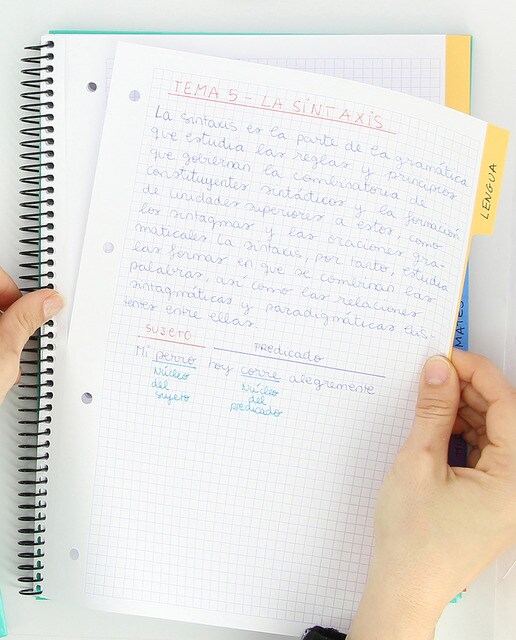 TEMA 5 - LA SINTAXIS
La sintaxis es la parte de la gramática
que estudia las reglas y principios
que gobiernan la combinatoria de
constituyentes sintácticos y la formación
de unidades superiores a estos, como
los sintagmas y las oraciones gra-
maticales. La sintaxis, por tanto, estudia
las formas en que se combinan las
palabras, así como las relaciones
sintagmáticas y paradigmáticas exis-
tentes entre ellas.
SUJETO PREDICADO
Mi perro hoy corre alegremente
Núcleo Núcleo
del del
sujeto predicado
LENGUA
MATES